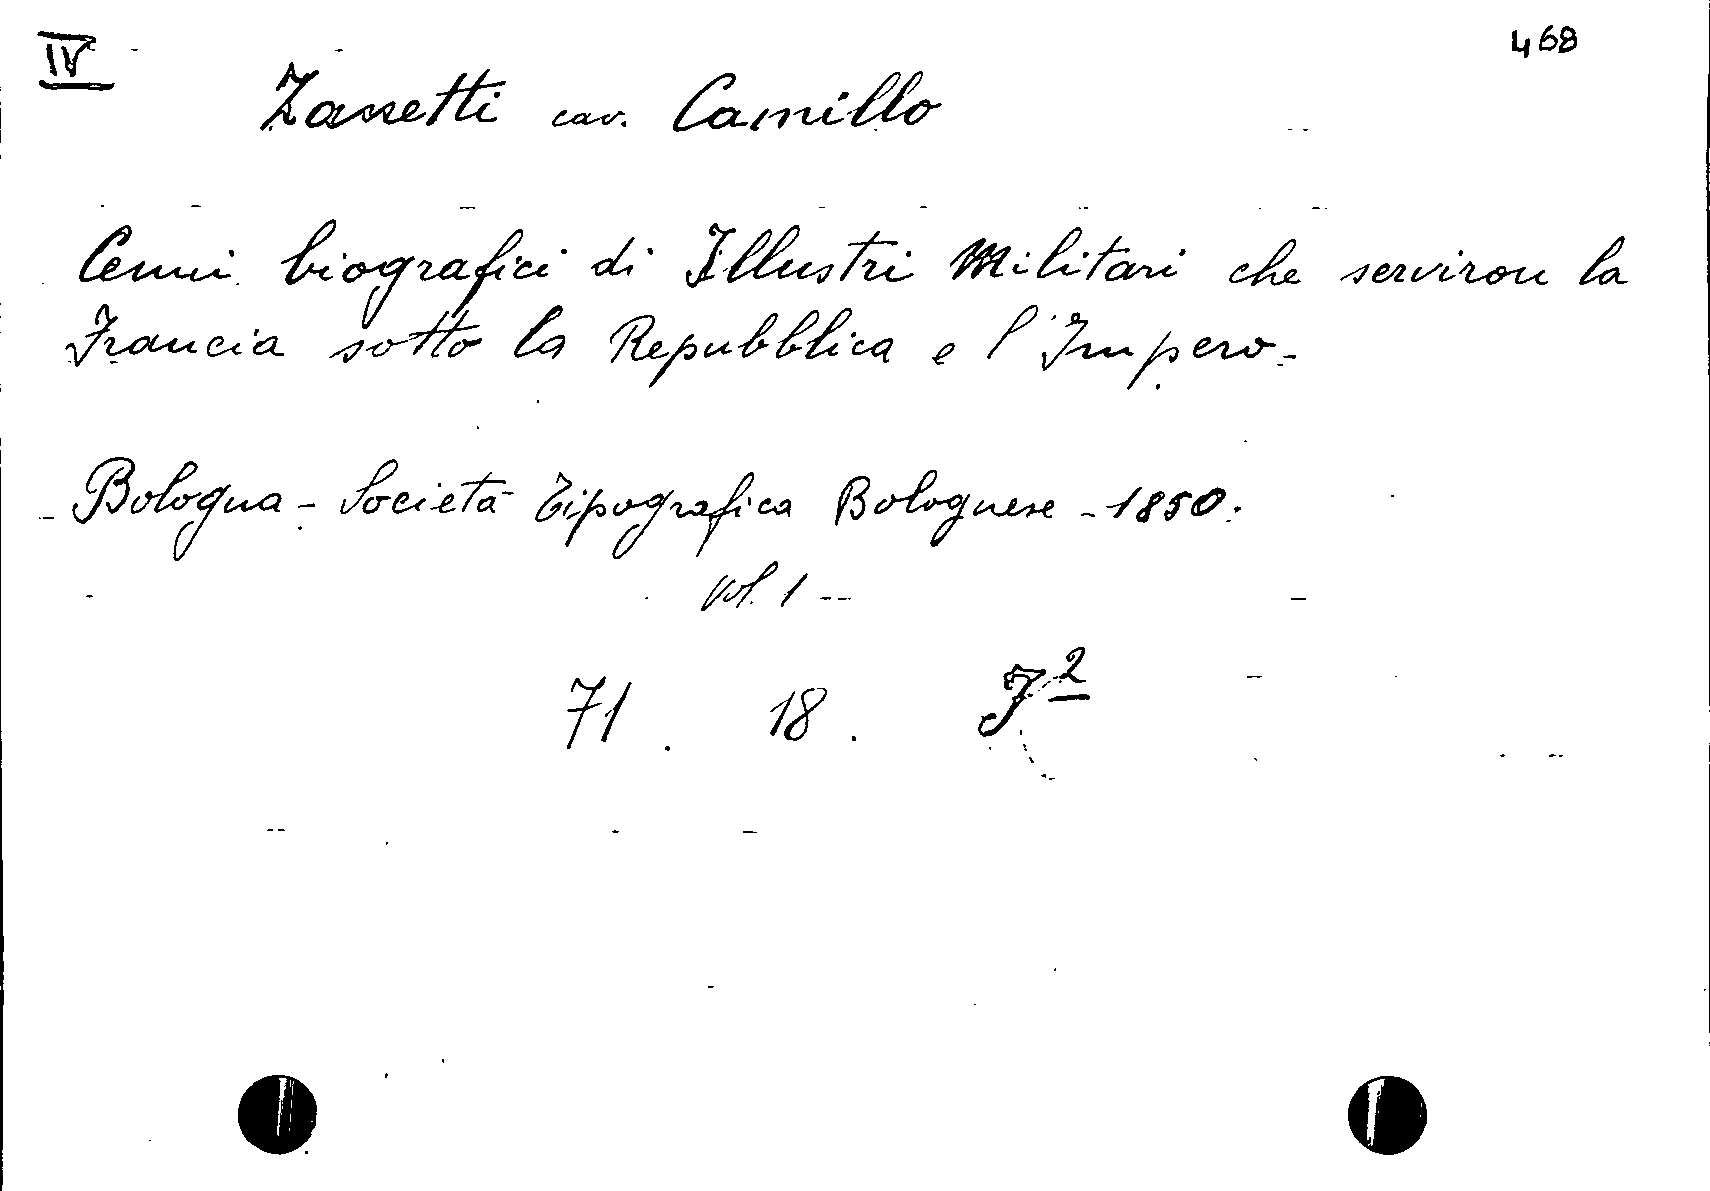 IV
468
Zassetti cav. Camillo
Cenni biografici di Illustri Militari che serviron la
Francia sotto la Repubblica e l'Impero -
Bologna - Società Tipografica Bolognese - 1850.
Vol. 1 --
71. 18. J2